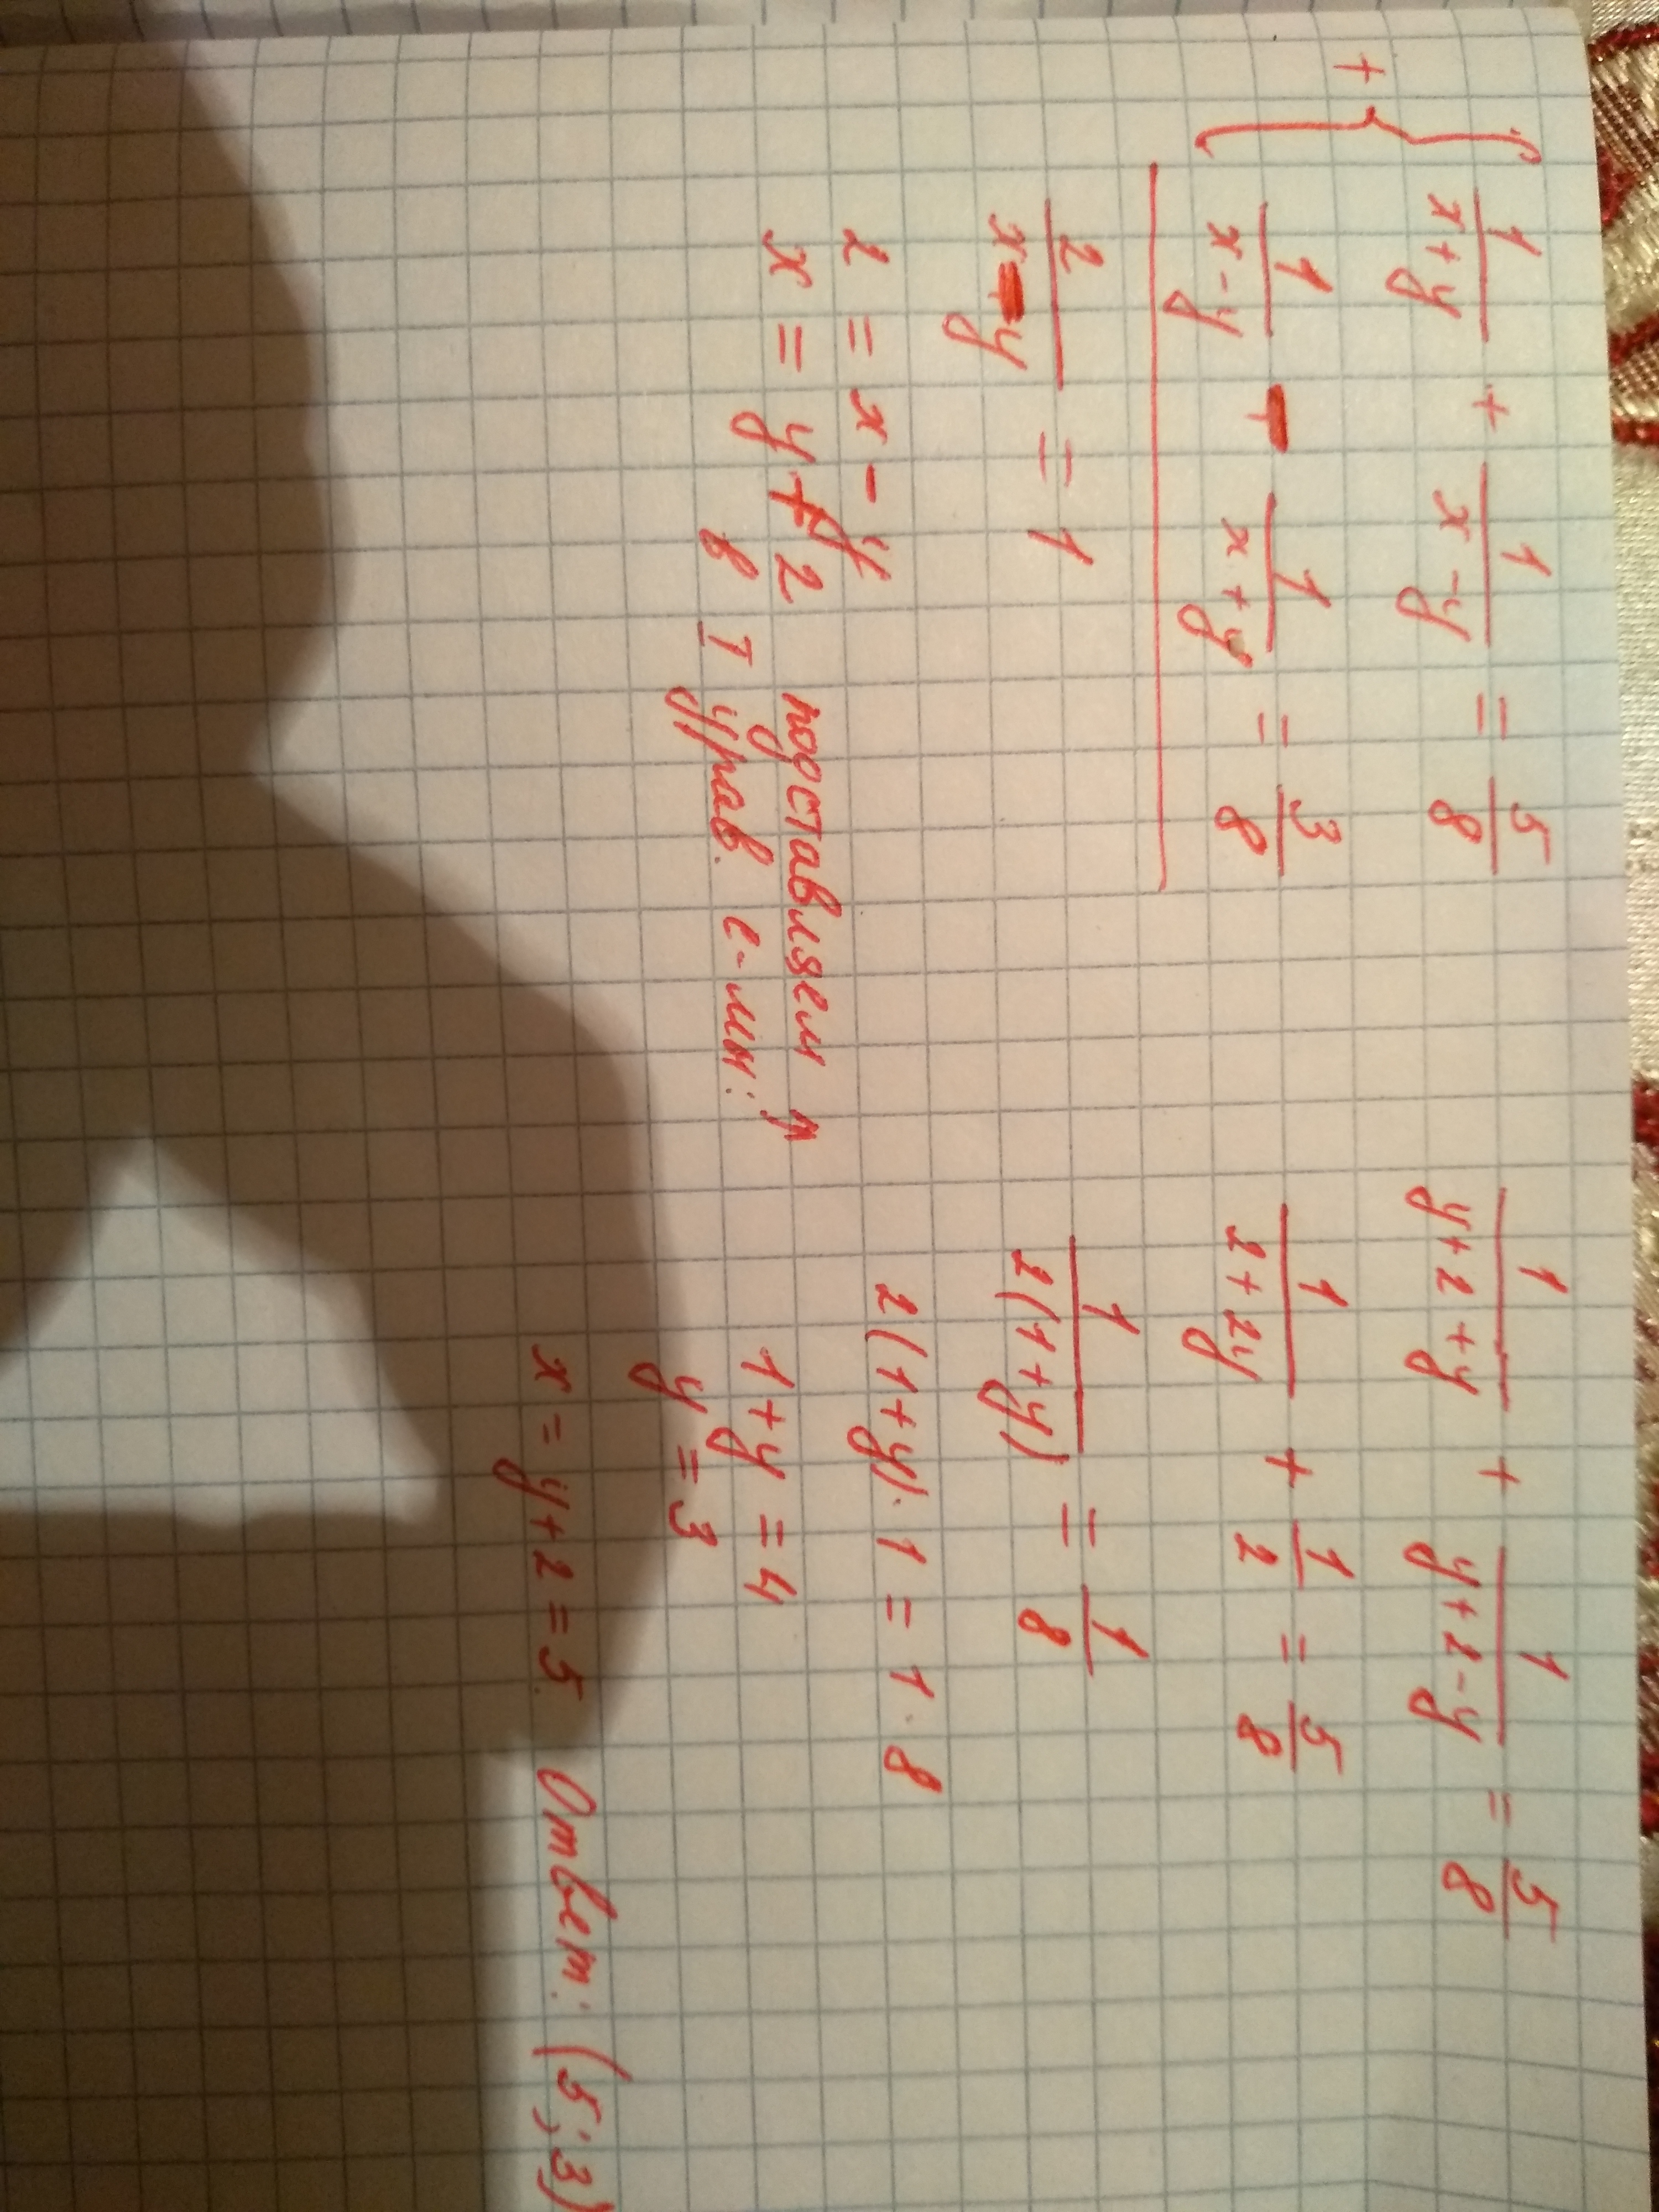 + { 1/(x+y) + 1/(x-y) = 5/8
1/(x-y) - 1/(x+y) = 3/8
2/(x-y) = 1
2 = x - y
x = y + 2 подставляем
в I урав. с-мы:
1/(y+2+y) + 1/(y+2-y) = 5/8
1/(2+2y) + 1/2 = 5/8
1/(2(1+y)) = 1/8
2(1+y)·1 = 1·8
1+y = 4
y = 3
x = y+2 = 5. Ответ: (5; 3)